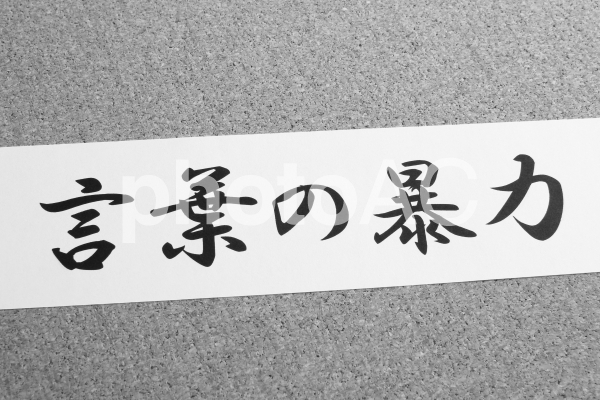 言葉の暴力
photoAC